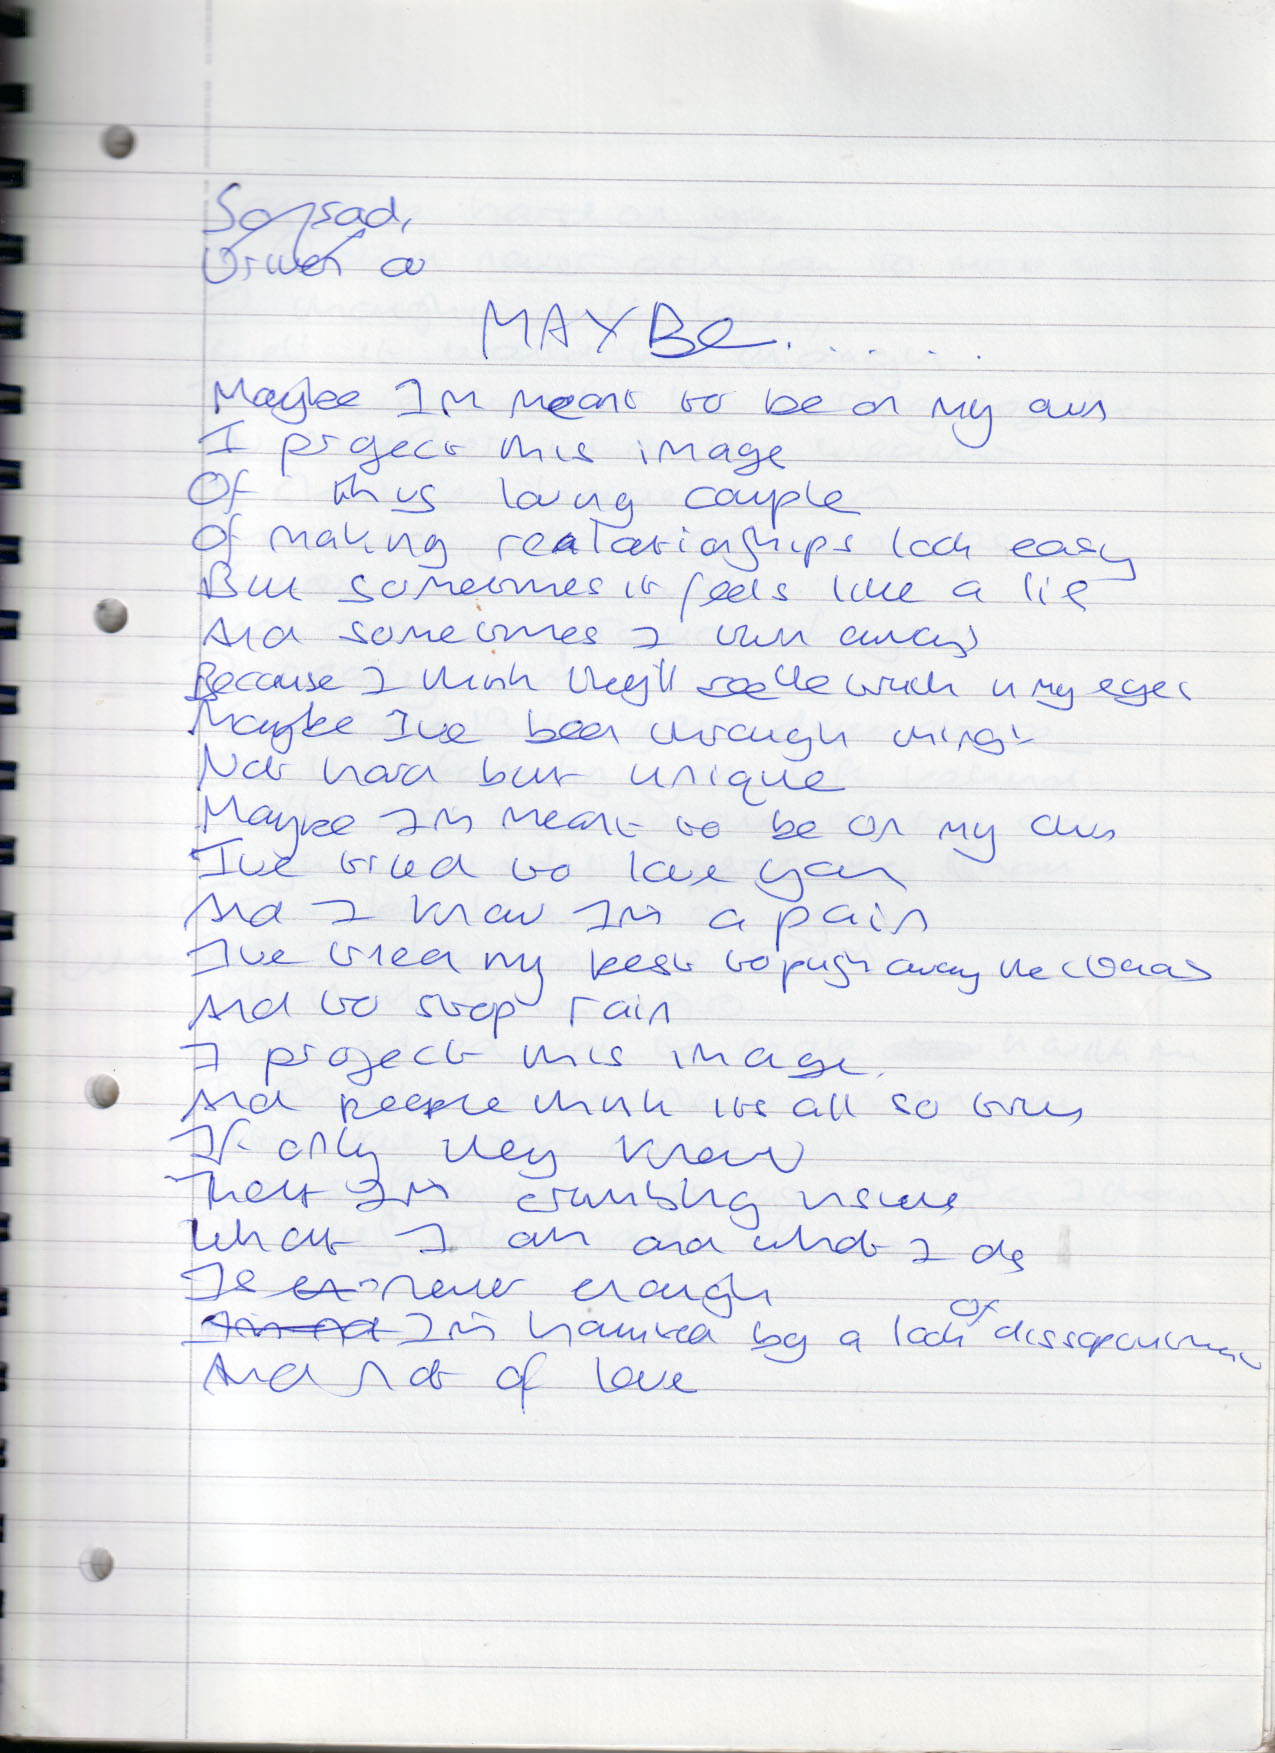 So sad,
Driven a
MAYBE.......
Maybe Im meant to be on my own
I project this image
Of this loving couple
Of making realationships look easy
But sometimes it feels like a lie
And sometimes I turn away
Because I think they'll see the truth in my eyes
Maybe Ive been through things
Not hard but unique
Maybe Im meant to be on my own
Ive tried to love you
And I know Im a pain
Ive tried my best to push away the clouds
And to stop rain
I project this image.
And people think its all so true
If only they knew
That Im crumbling inside
What I am and what I do
Is never enough
Im haunted by a lack of
And not of love